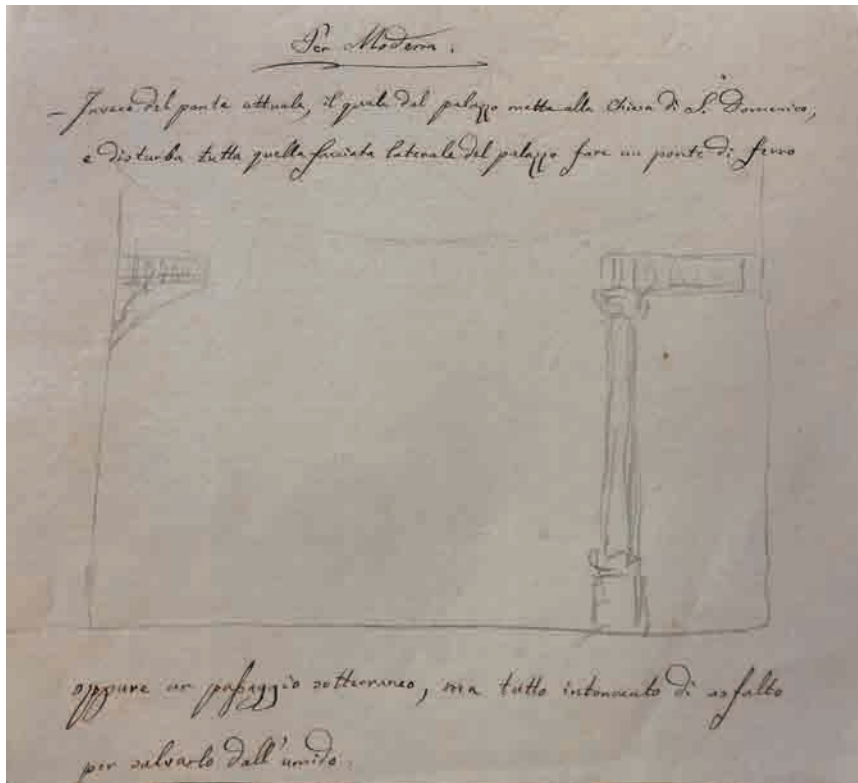 Per Modena.
– Invece del ponte attuale, il quale dal palazzo mette alla Chiesa di S. Domenico,
e disturba tutta quella facciata laterale del palazzo fare un ponte di ferro
oppure un passaggio sotterraneo, ma tutto intonacato di asfalto
per salvarlo dall'umido.